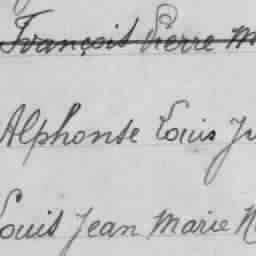 François Pierre M
Alphonse Louis Ju
Louis Jean Marie N